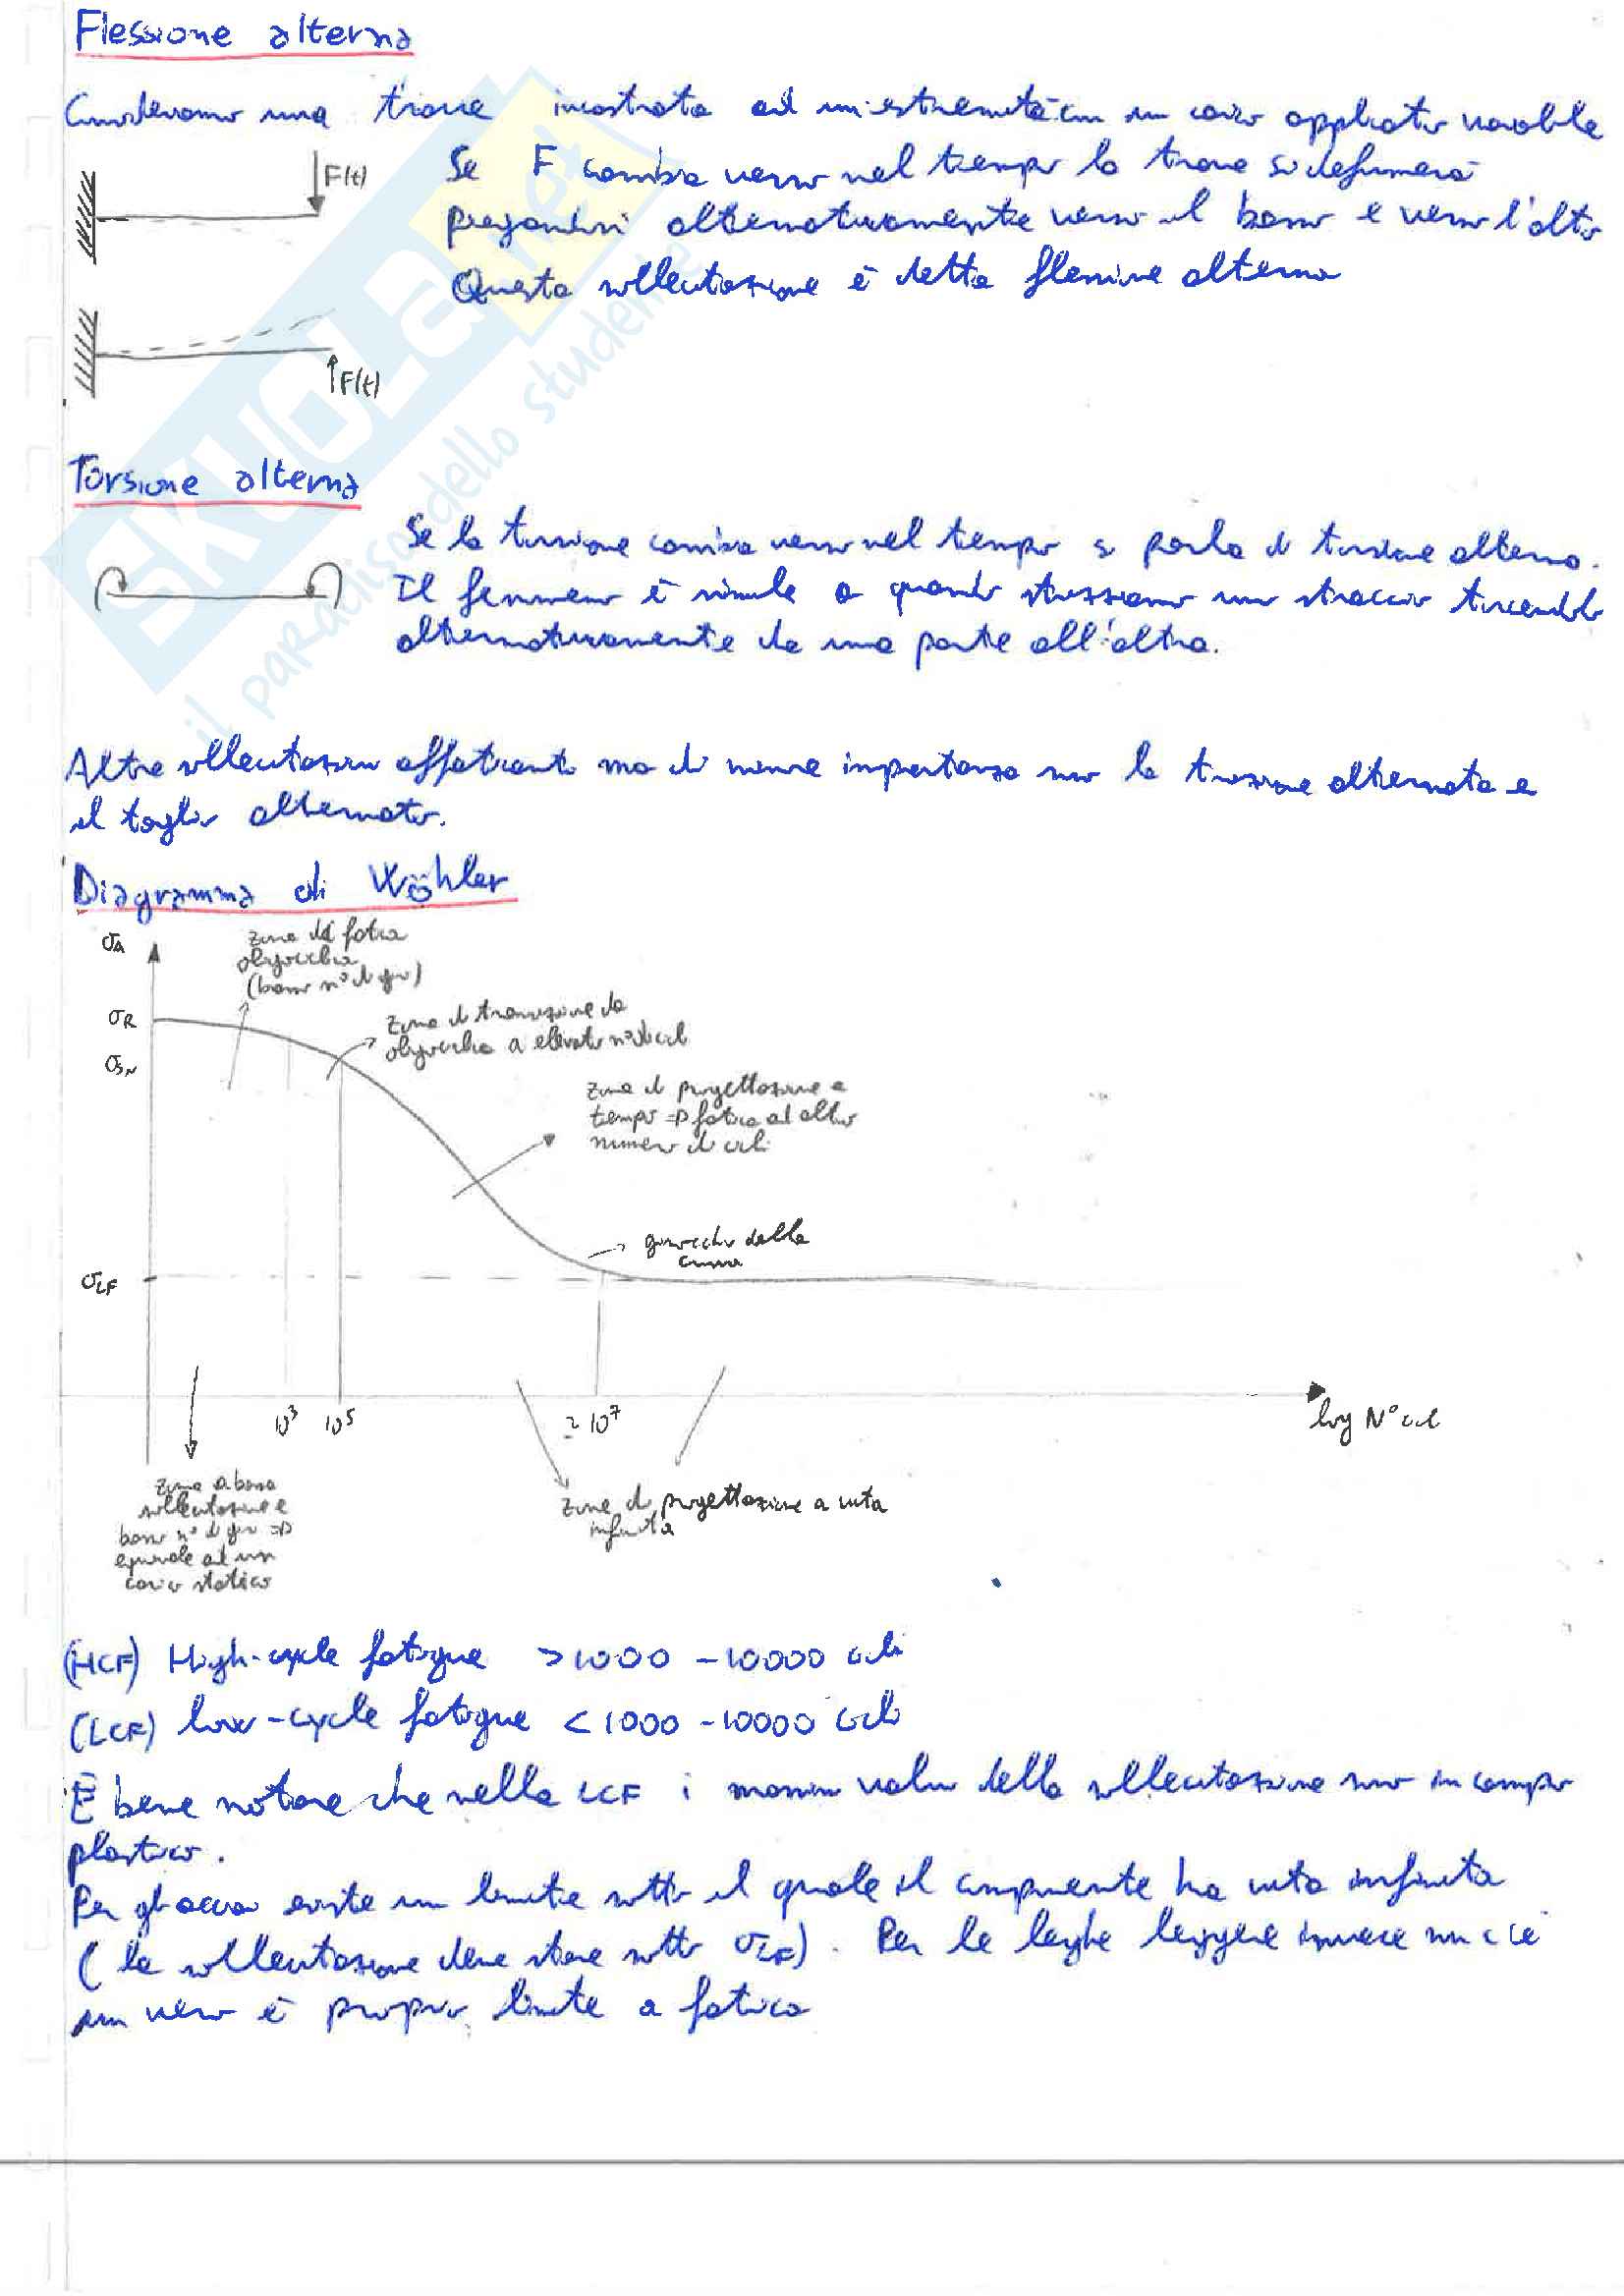 Flessione alterna
Consideriamo una trave incastrata ad un'estremità con un carico applicato variabile
F(t)
Se F cambia verso nel tempo la trave si deformerà
piegandosi alternativamente verso il basso e verso l'alto
Questa sollecitazione è detta flessione alterna
F(t)
Torsione alterna
Se la torsione cambia verso nel tempo si parla di torsione alterna.
Il fenomeno è simile a quando strizziamo uno straccio torcendolo
alternativamente da una parte all'altra.
Altre sollecitazioni affaticanti ma di minore importanza sono la trazione alternata e
il taglio alternato.
Diagramma di Wöhler
σA
Zona di fatica
oligociclica
(basso n° di giri)
σR
Zona di transizione da
oligociclica a elevato n° di cicli
σSN
Zona di progettazione a
tempo => fatica ad alto
numero di cicli
ginocchio della
curva
σLF
10³ 10⁵ ≃ 10⁷
log N° cicli
Zona a bassa
sollecitazione e
basso n° di giri =>
equivale ad un
carico statico
Zone di progettazione a vita
infinita
(HCF) High-cycle fatigue > 1000 - 10000 cicli
(LCF) low-cycle fatigue < 1000 - 10000 cicli
È bene notare che nella LCF i massimi valori della sollecitazione sono in campo
plastico.
Per gli acciai esiste un limite sotto il quale il componente ha vita infinita
(la sollecitazione deve stare sotto σLF). Per le leghe leggere invece non c'è
un vero e proprio limite a fatica
SKUOLA.net
il paradiso dello studente